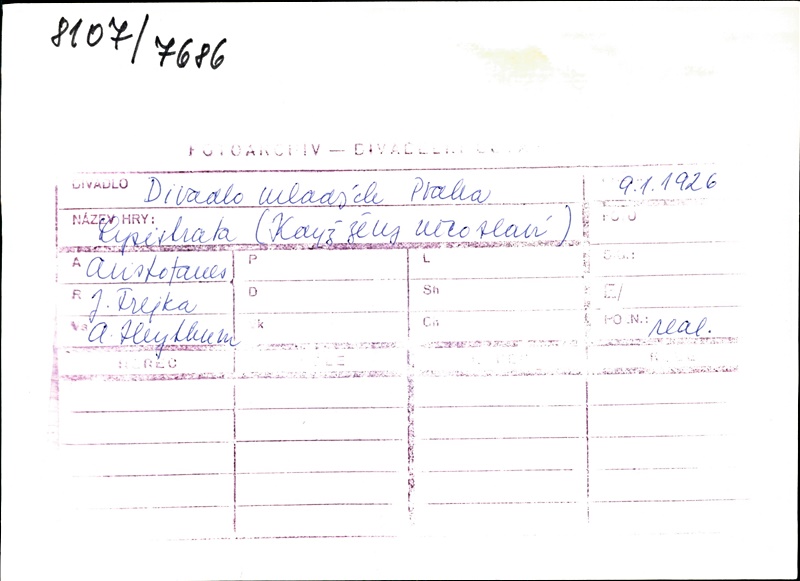 8107/7686
FOTOARCHIV — DIVADELNÍ
DIVADLO Divadlo mladých Praha 9.1.1926
NÁZEV HRY: Lysistrata (Když ženy něco slaví) FOTO
A Aristofanes P L
R J. Frejka O Sh E/
Vs A. Heythum k Ch PO.N.: real.
HEREC